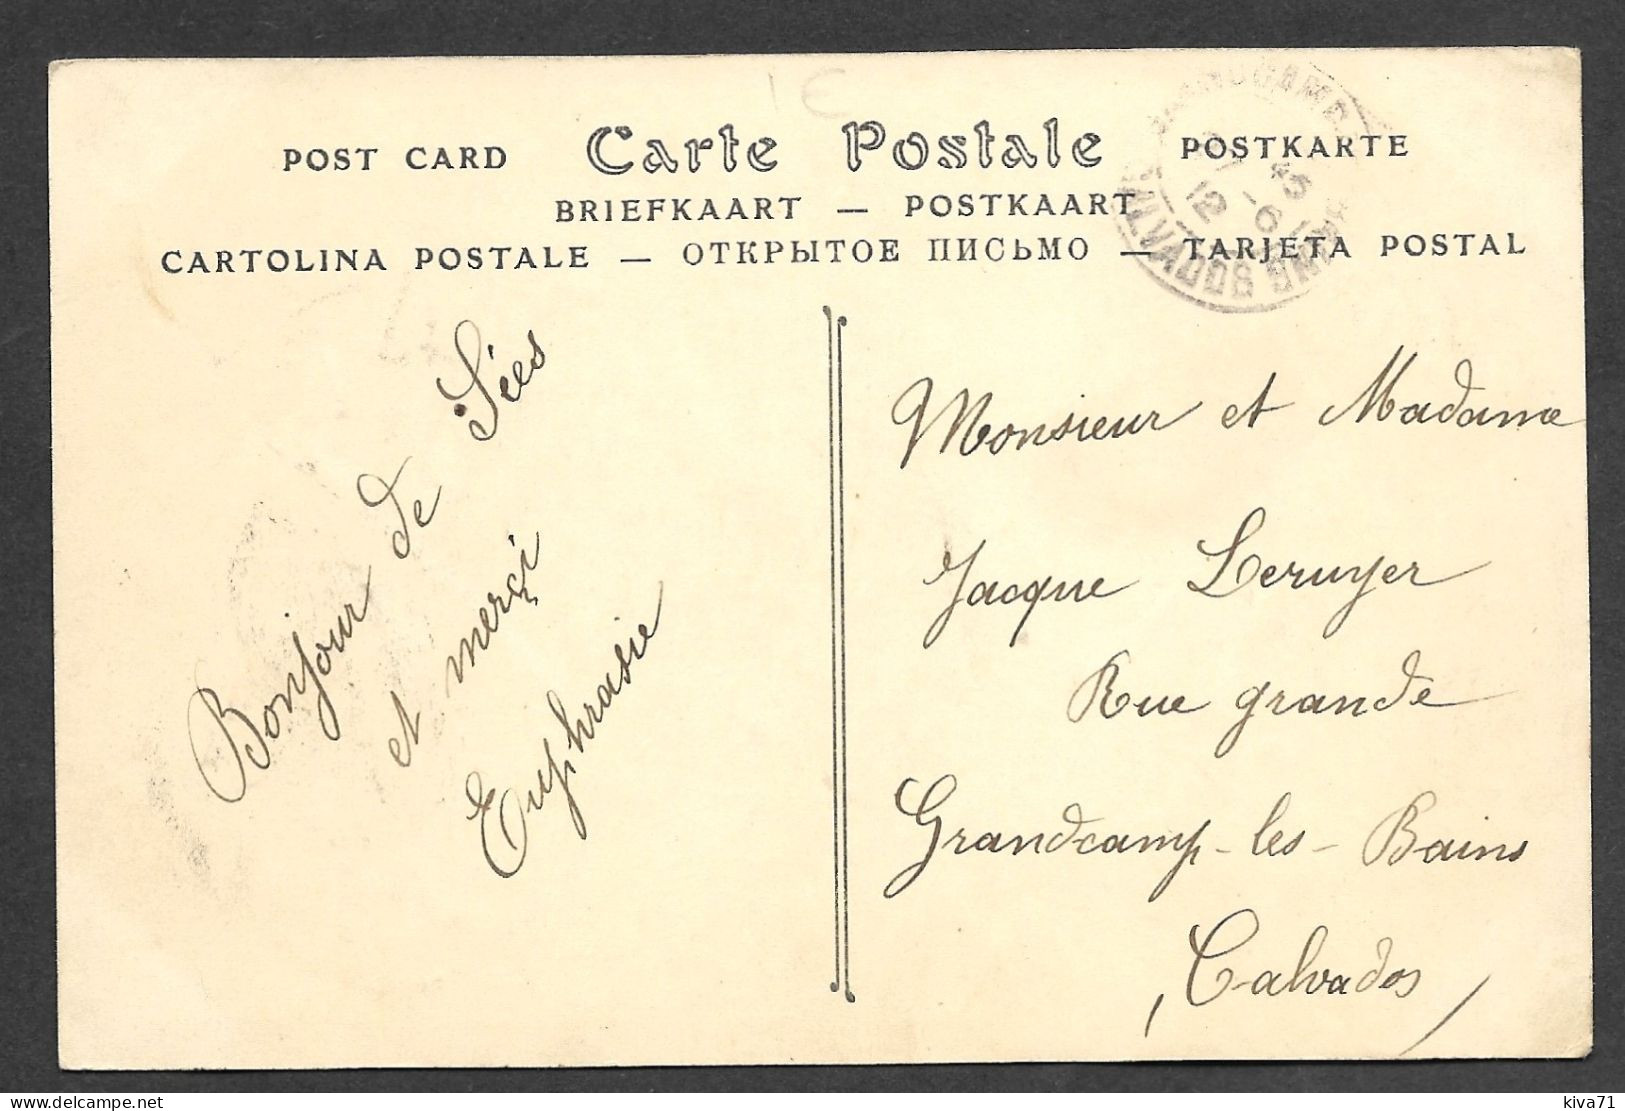 1€
POST CARD Carte Postale POSTKARTE
BRIEFKAART — POSTKAART
CARTOLINA POSTALE — ОТКРЫТОЕ ПИСЬМО — TARJETA POSTAL
CALVADOS
12 -6
45
Bonjour de Sées
et merçi
Euphrasie
Monsieur et Madame
Jacque Leruyer
Rue grande
Grandcamp-les-Bains
(Calvados)
www.delcampe.net
kiva71